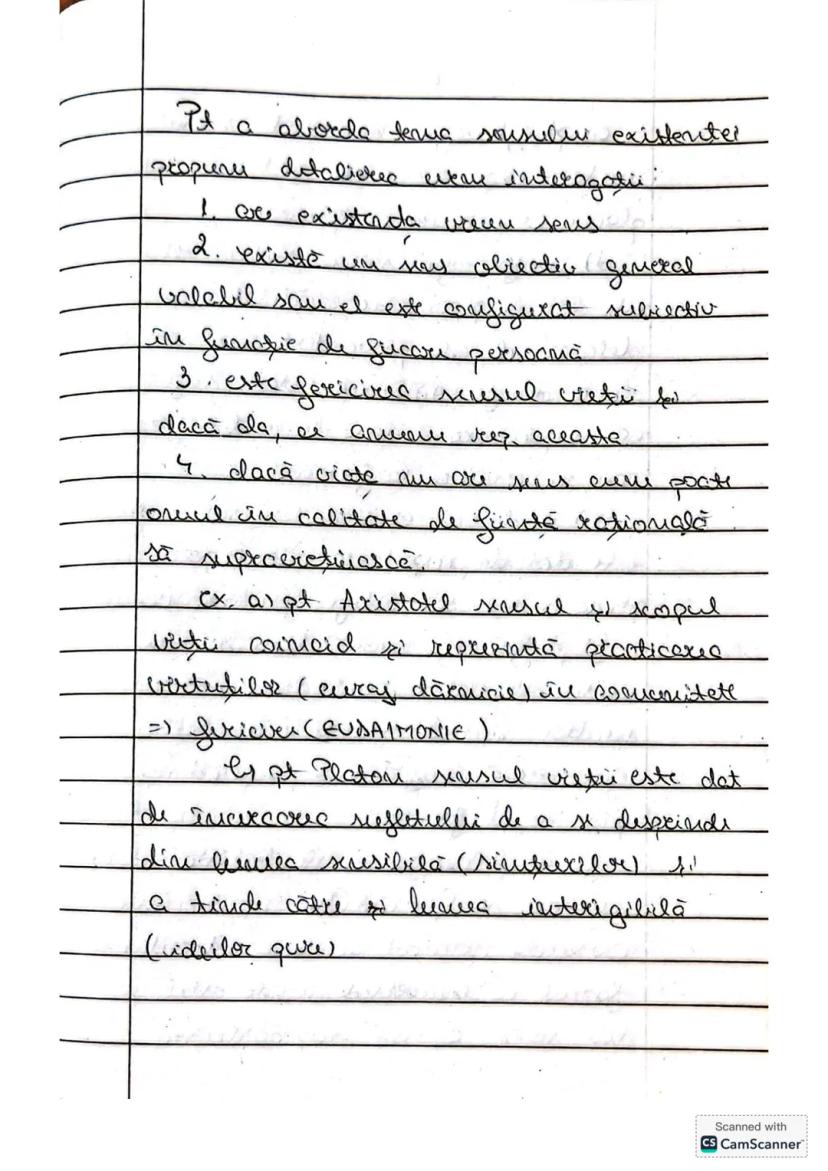 Pt a aborda tema sensului existentei
propunu detalierea urm interogații:
1. are existența vreun sens
2. există un sens obiectiv general
valabil sau el este configurat subiectiv
în funcție de fiecare persoană
3. este fericirea sensul vieții și
dacă da, ce anume rep. aceasta
4. dacă viața nu are sens cum poate
omul în calitate de ființă rațională
să supraviețuiască
ex. a) pt Aristotel sensul și scopul
vieții coincid și reprezintă practicarea
virtuților (curaj, dărnicie) în comunitate
=) fericire (EUDAIMONIE)
b) pt Platon sensul vieții este dat
de încercarea sufletului de a se desprinde
din lumea sensibilă (simțurilor) și
a tinde către și lumea interigibilă
(ideilor pure)
Scanned with
CS CamScanner